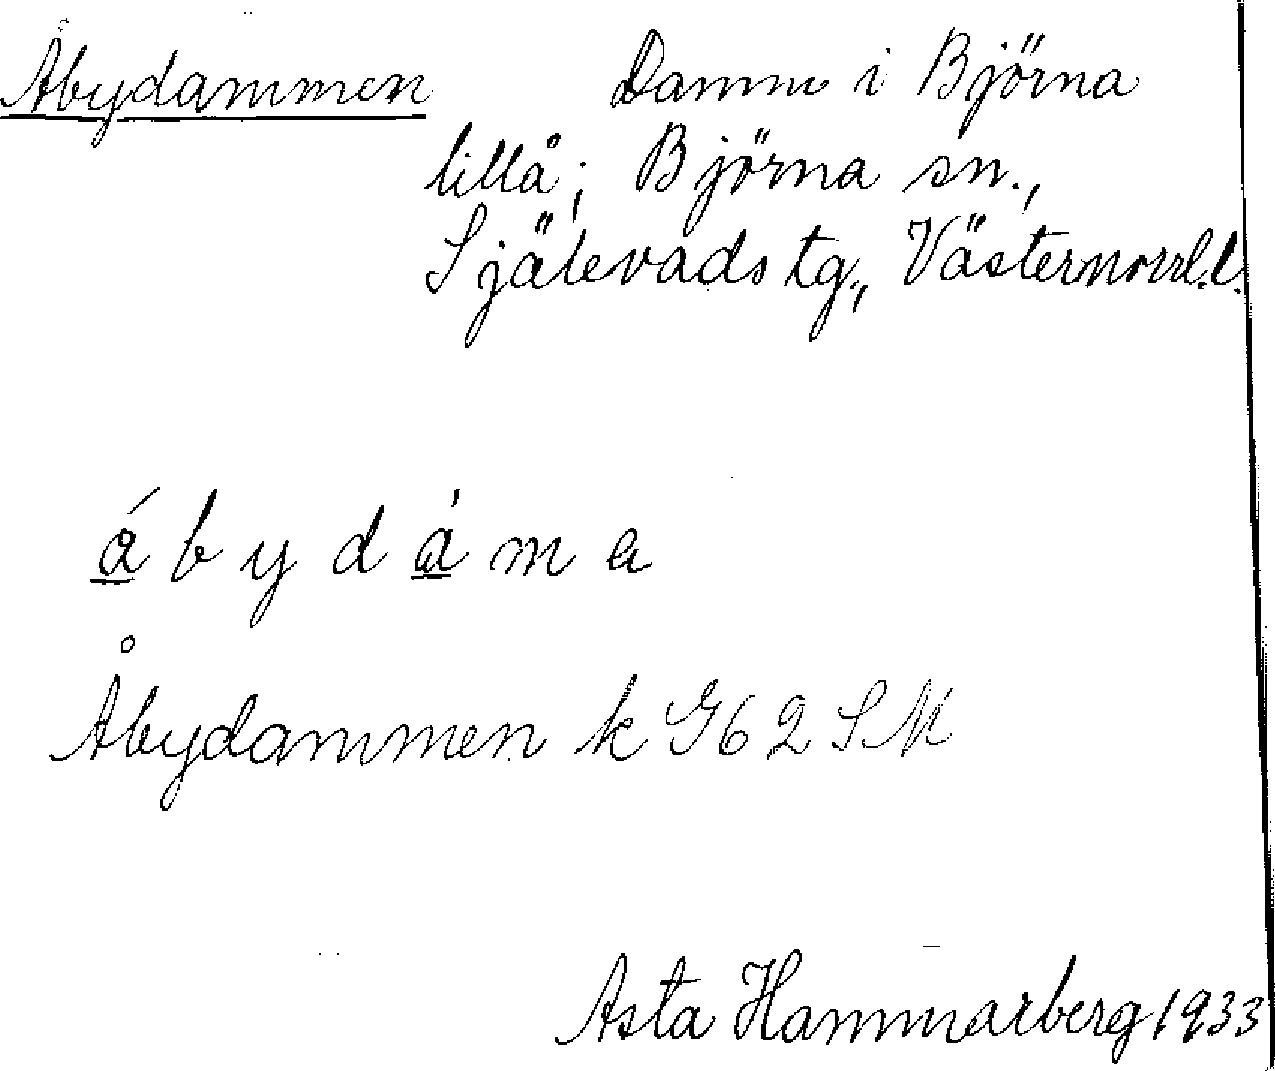 Åbydammen Damm i Björna
lillå; Björna sn.,
Själevads tg., Västernorrl.l.
á b y d á m a
Åbydammen k G62 SK
Asta Hammarberg 1933